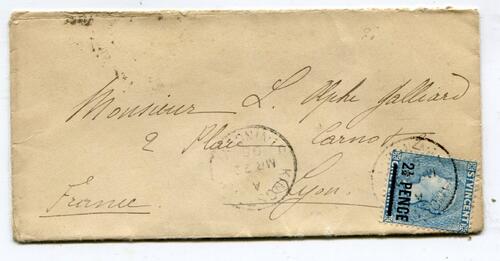 Monsieur L. Alphe Jalliard
2 Place Carnot
Lyon.
France
KINGS
A
MR 2
95
ST VINCENT
2½ PENCE